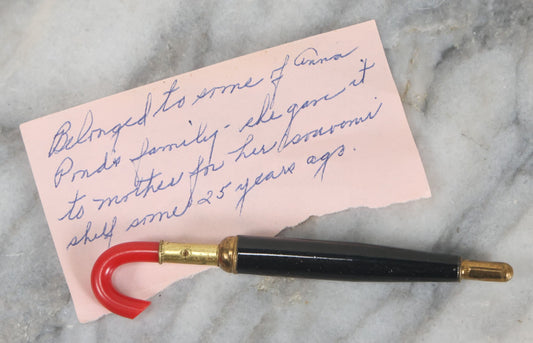 Belonged to some of Anna
Pond's family - she gave it
to mother for her souvomi
shelf some 25 years ago.